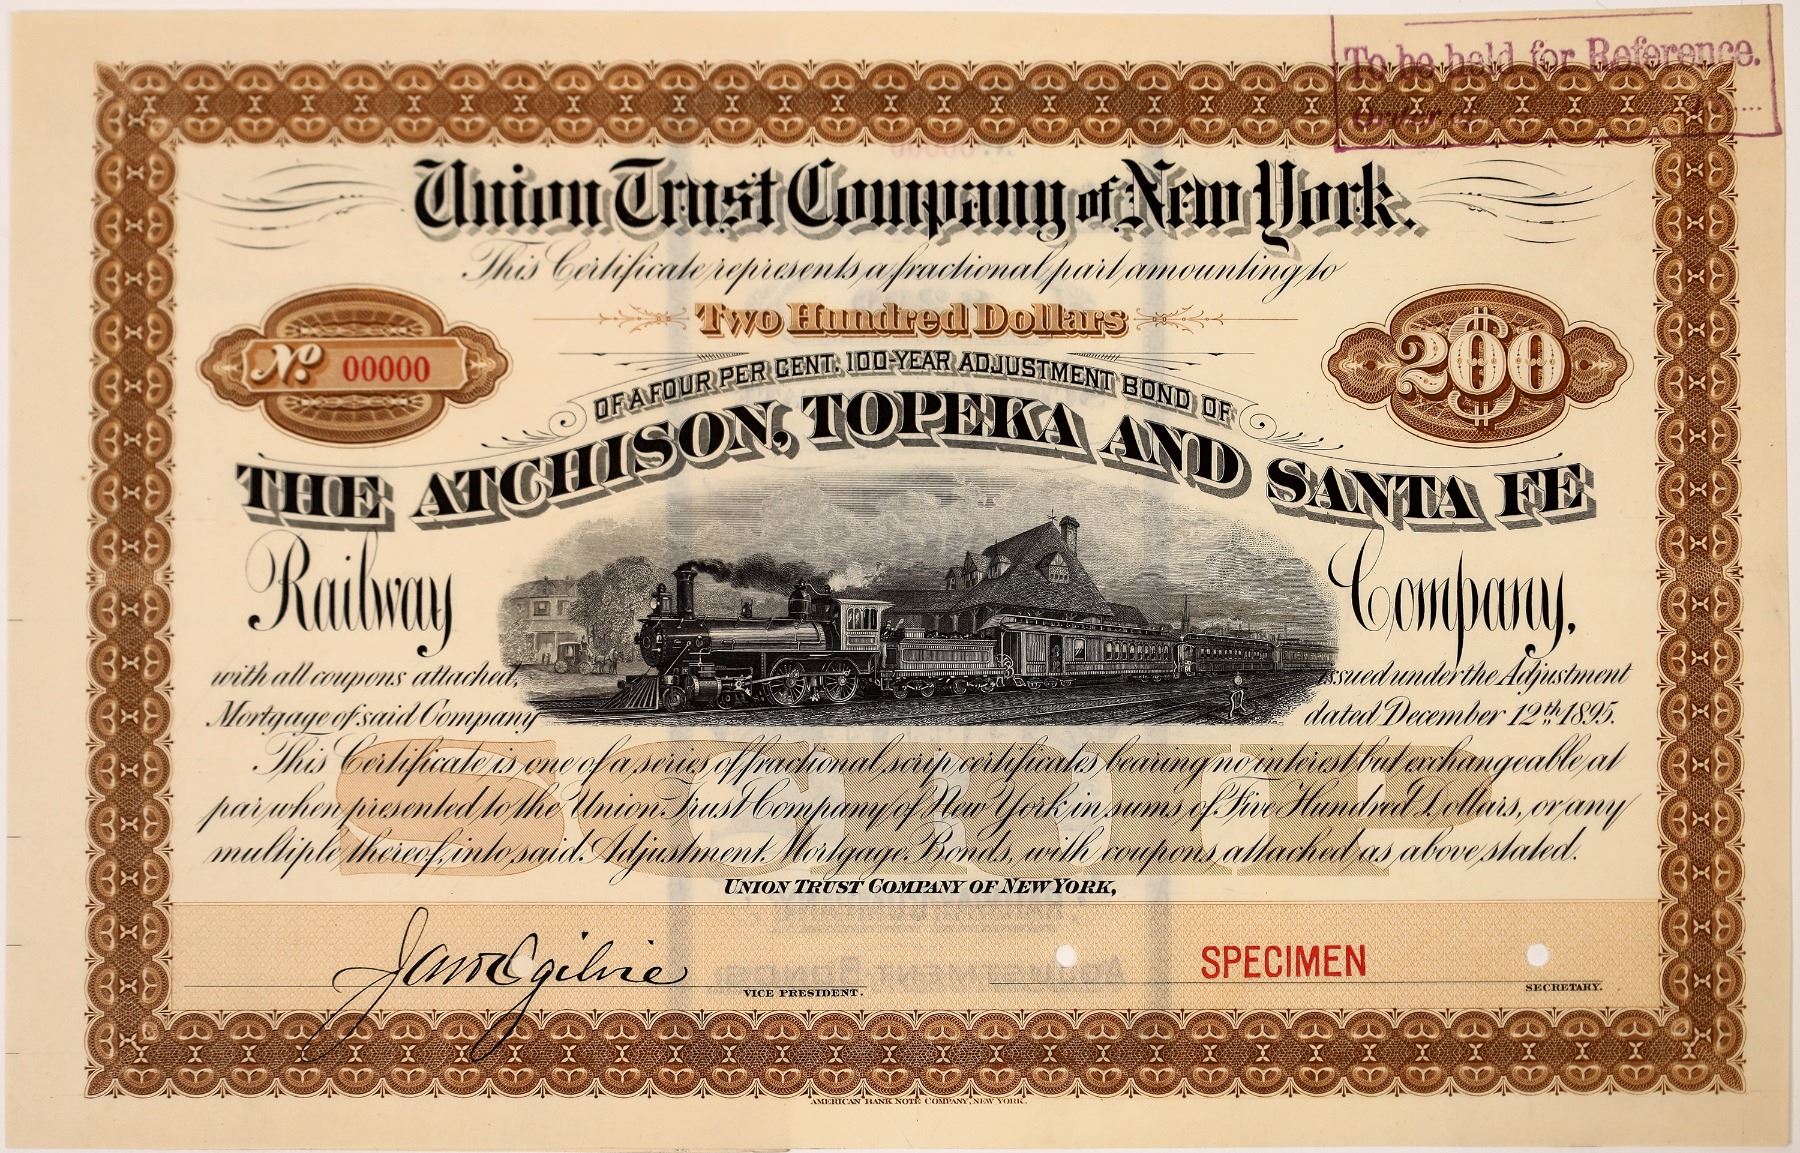 To be held for Reference.
Order of
Union Trust Company of New York.
This Certificate represents a fractional part amounting to
Two Hundred Dollars
No. 00000
$200
OF A FOUR PER CENT. 100-YEAR ADJUSTMENT BOND OF
THE ATCHISON, TOPEKA AND SANTA FE
Railway Company,
with all coupons attached, issued under the Adjustment
Mortgage of said Company dated December 12th 1895.
SCRIP
This Certificate is one of a series of fractional scrip certificates bearing no interest but exchangeable at
par when presented to the Union Trust Company of New York in sums of Five Hundred Dollars, or any
multiple thereof, into said Adjustment Mortgage Bonds, with coupons attached as above stated.
UNION TRUST COMPANY OF NEW YORK,
SPECIMEN
VICE PRESIDENT. SECRETARY.
AMERICAN BANK NOTE COMPANY, NEW YORK.